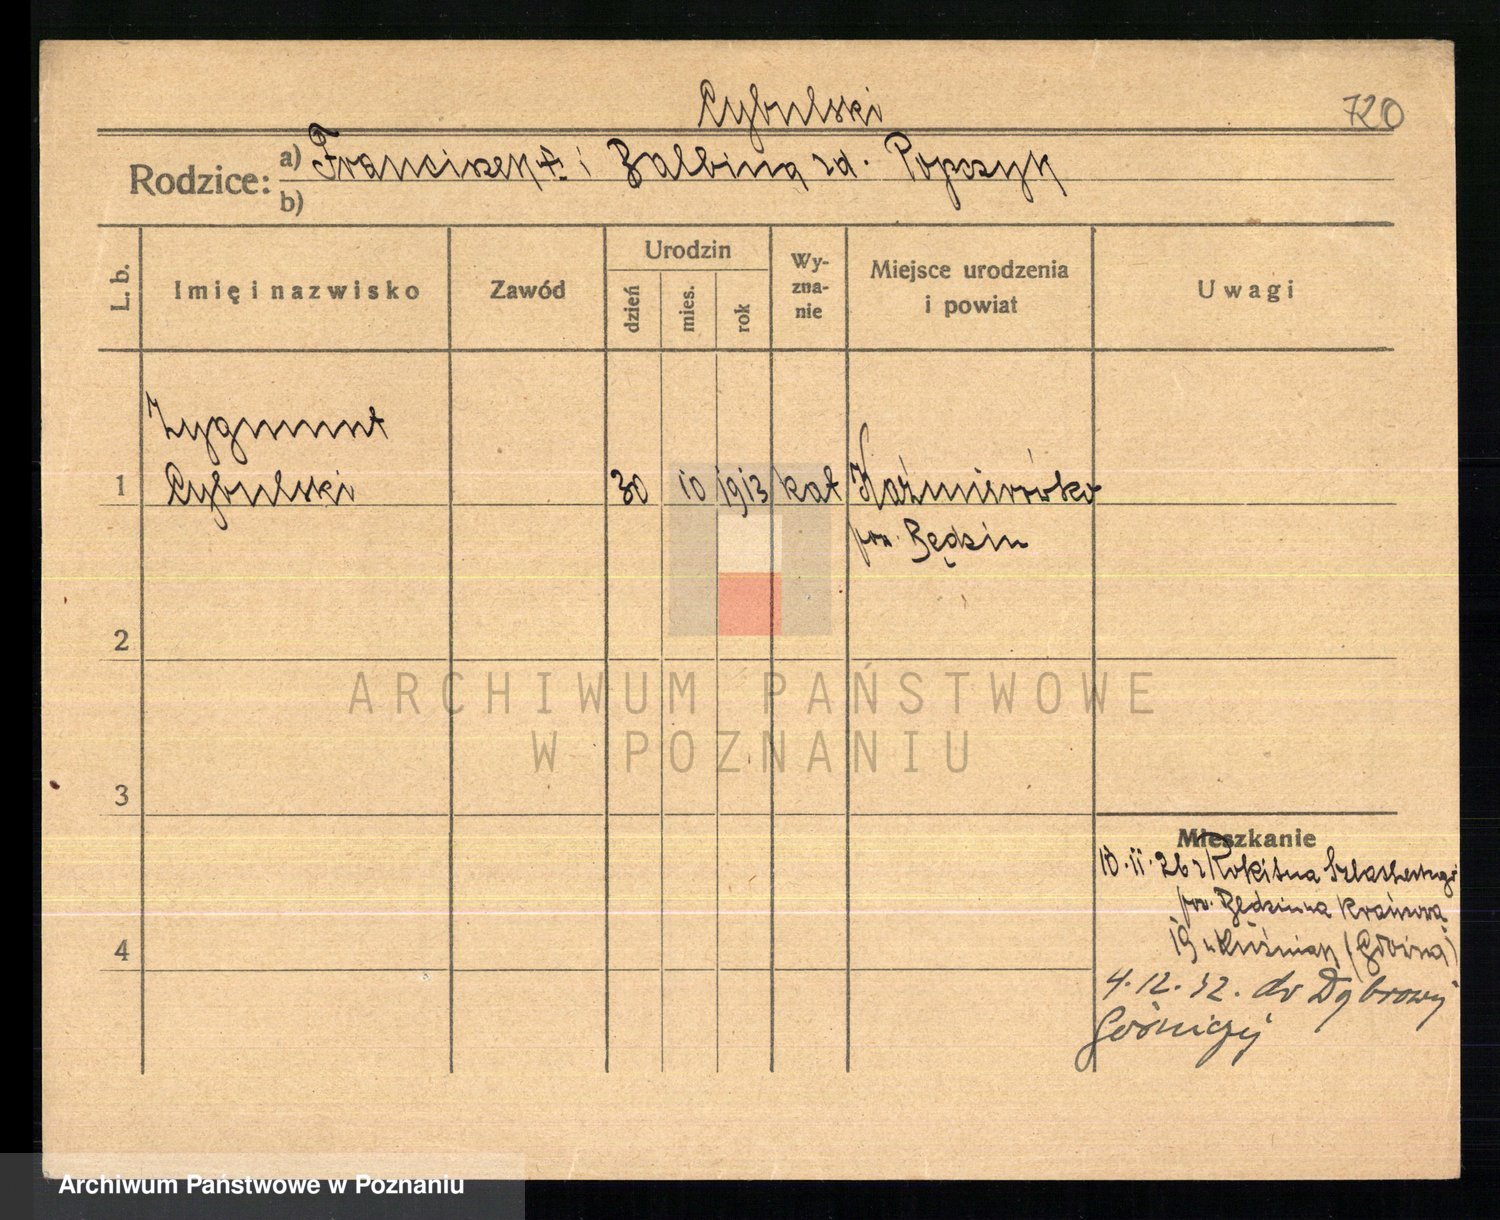 Cybulski
720
Rodzice: a) Franciszek † i Balbina zd. Popczyk
b)
L. b.
Imię i nazwisko
Zawód
Urodzin
dzień
mies.
rok
Wy-
zna-
nie
Miejsce urodzenia
i powiat
Uwagi
Zygmunt
1 Cybulski 30 10 1913 kat Kaźmierówka
pow. Będzin
2
3
4
Mieszkanie
Rokitna Szlacheckiego
pow. Będzin na
19 u Kuźniak
4.12.32. do Dąbrowy
Górniczej
ARCHIWUM PAŃSTWOWE
W POZNANIU
Archiwum Państwowe w Poznaniu